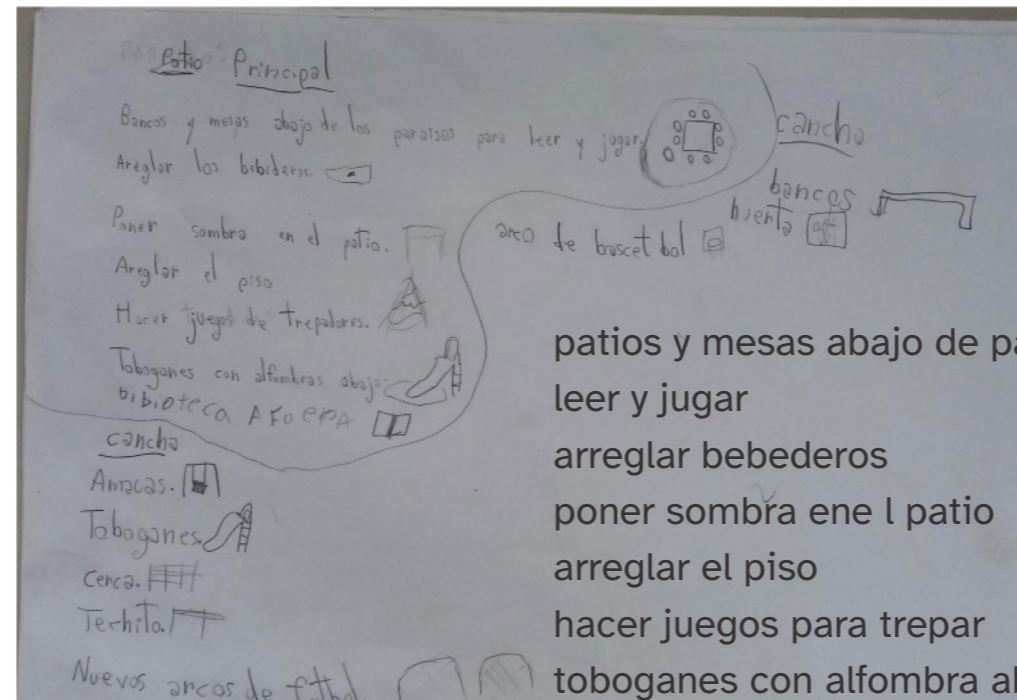 Patio Principal
Bancos y mesas abajo de los paraisos para leer y jugar.
Areglar los bebederos.
Poner sombra en el patio.
Areglar el piso
Hacer juegos de trepadores.
Toboganes con alfombras abajo.
bibioteca AFuERA
cancha
Amacas.
Toboganes.
Cerca.
Techito.
Nuevos arcos de futbol.
cancha
bancos
huerta
arco de bascet bol
patios y mesas abajo de pa
leer y jugar
arreglar bebederos
poner sombra ene l patio
arreglar el piso
hacer juegos para trepar
toboganes con alfombra a